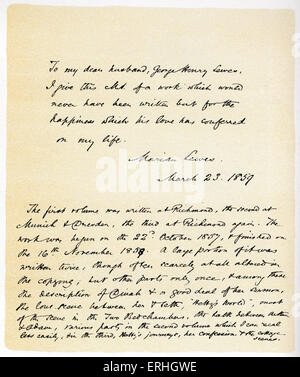 To my dear husband, George Henry Lewes,
I give this MS. of a work which would
never have been written but for the
happiness which his love has conferred
on my life.
Marian Lewes.
March 23. 1859
The first volume was written at Richmond, the second at
Munich & Dresden, the third at Richmond again. The
work was begun on the 22d October 1857, & finished on
the 16th November 1858. A large portion of it was
written twice, though often scarcely at all altered in
the copying, but other parts only once, & among these
the description of Dinah & a good deal of her sermon,
the love scene between her & Seth, "Hetty's world", most
of the scene in the Two Bedchambers, the talk between
& Adam, various parts in the second volume which I can recal
less easily, & in the third, Hetty's journeys, her confession & the cottage
scenes.
alamy
ERHGWE